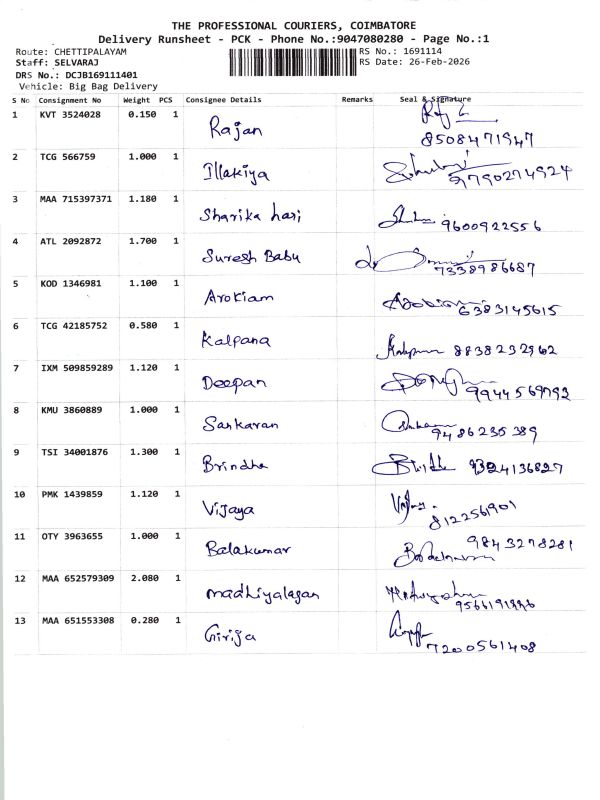 THE PROFESSIONAL COURIERS, COIMBATORE
Delivery Runsheet - PCK - Phone No.:9047080280 - Page No.:1
Route: CHETTIPALAYAM RS No.: 1691114
Staff: SELVARAJ RS Date: 26-Feb-2026
DRS No.: DCJB169111401
Vehicle: Big Bag Delivery
S No Consignment No Weight PCS Consignee Details Remarks Seal & Signature
1 KVT 3524028 0.150 1 Rajan 8508471947
2 TCG 566759 1.000 1 Illakiya 9790274924
3 MAA 715397371 1.180 1 Sharika hari 9600922556
4 ATL 2092872 1.700 1 Suresh Babu 7338986687
5 KOD 1346981 1.100 1 Arokiam 6383145615
6 TCG 42185752 0.580 1 Kalpana 8838232962
7 IXM 509859289 1.120 1 Deepan
8 KMU 3860889 1.000 1 Sankaran 9486235389
9 TSI 34001876 1.300 1 Brindha
10 PMK 1439859 1.120 1 Vijaya 8122561901
11 OTY 3963655 1.000 1 Balakumar 9843278281
12 MAA 652579309 2.080 1 Madhiyalagan
13 MAA 651553308 0.280 1 Girija 7200561408